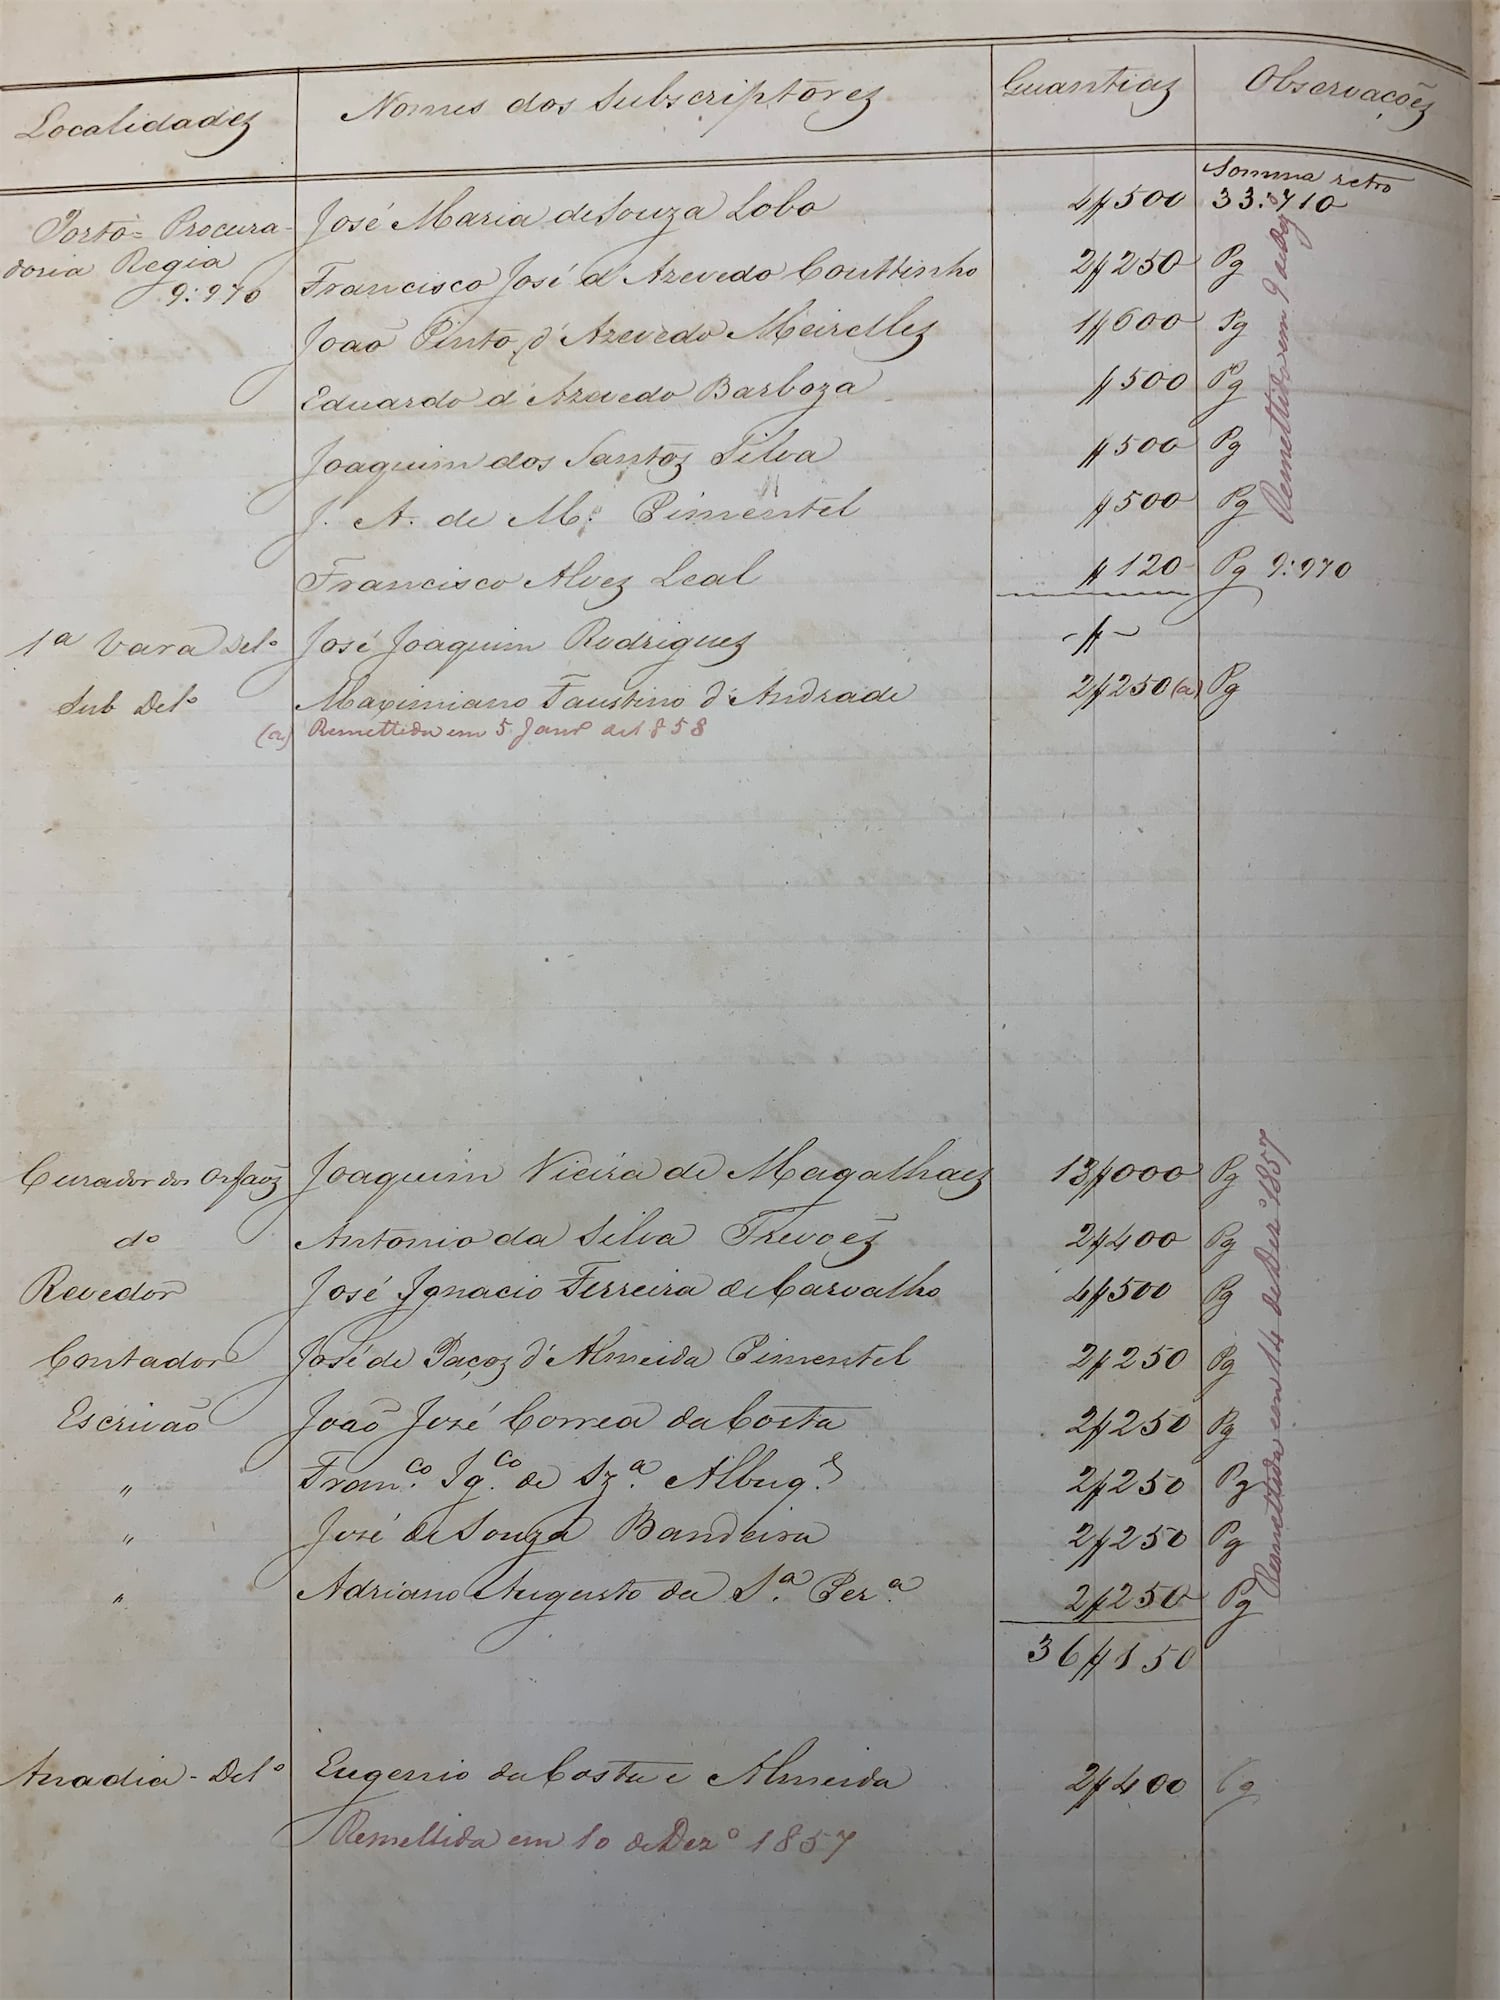 Localidades Nomes dos Subscriptores Quantias Observações
Somma retro
José Maria de Souza Lobo 4$500 33:710
Porto = Procura-
doria Regia
9:970
Francisco José d'Azevedo Couttinho 2$250 Pg
João Pinto d'Azevedo Meirelles 1$600 Pg
Eduardo d'Azevedo Barboza $500 Pg
Joaquim dos Santos Silva $500 Pg
J. A. de M. Pimentel $500 Pg
Francisco Alves Leal $120 Pg 9:970
Remettido em 9
1ª Vara Delº José Joaquim Rodrigues -$-
Sub Delº Maximiano Faustino d'Andrade 2$250 (a) Pg
(a) Remettida em 5 Janrº de 1858
Curador dos Orfãos Joaquim Vieira de Magalhaes 13$000 Pg
dº Antonio da Silva Trevoes 2$400 Pg
Revedor José Ignacio Ferreira de Carvalho 4$500 Pg
Contador José de Paços d'Almeida Pimentel 2$250 Pg
Escrivão João José Correa da Costa 2$250 Pg
" Fran.co Ig.co de Sz.a Albuq.e 2$250 Pg
" José de Souza Bandeira 2$250 Pg
" Adriano Augusto da S.a Per.a 2$250 Pg
36$150
Remettida em 14 de Dezº 1857
Anadia - Delº Eugenio da Costa e Almeida 2$400 Pg
Remettida em 10 de Dezº 1857